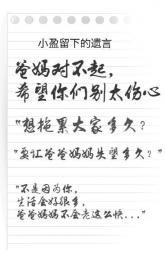 小盈留下的遺言
爸妈对不起,
希望你们别太伤心
"想拖累大家多久?
"要让爸爸妈妈失望多久?"
"不是因为你,
生活会好很多,
爸爸妈妈不会老这么快..."